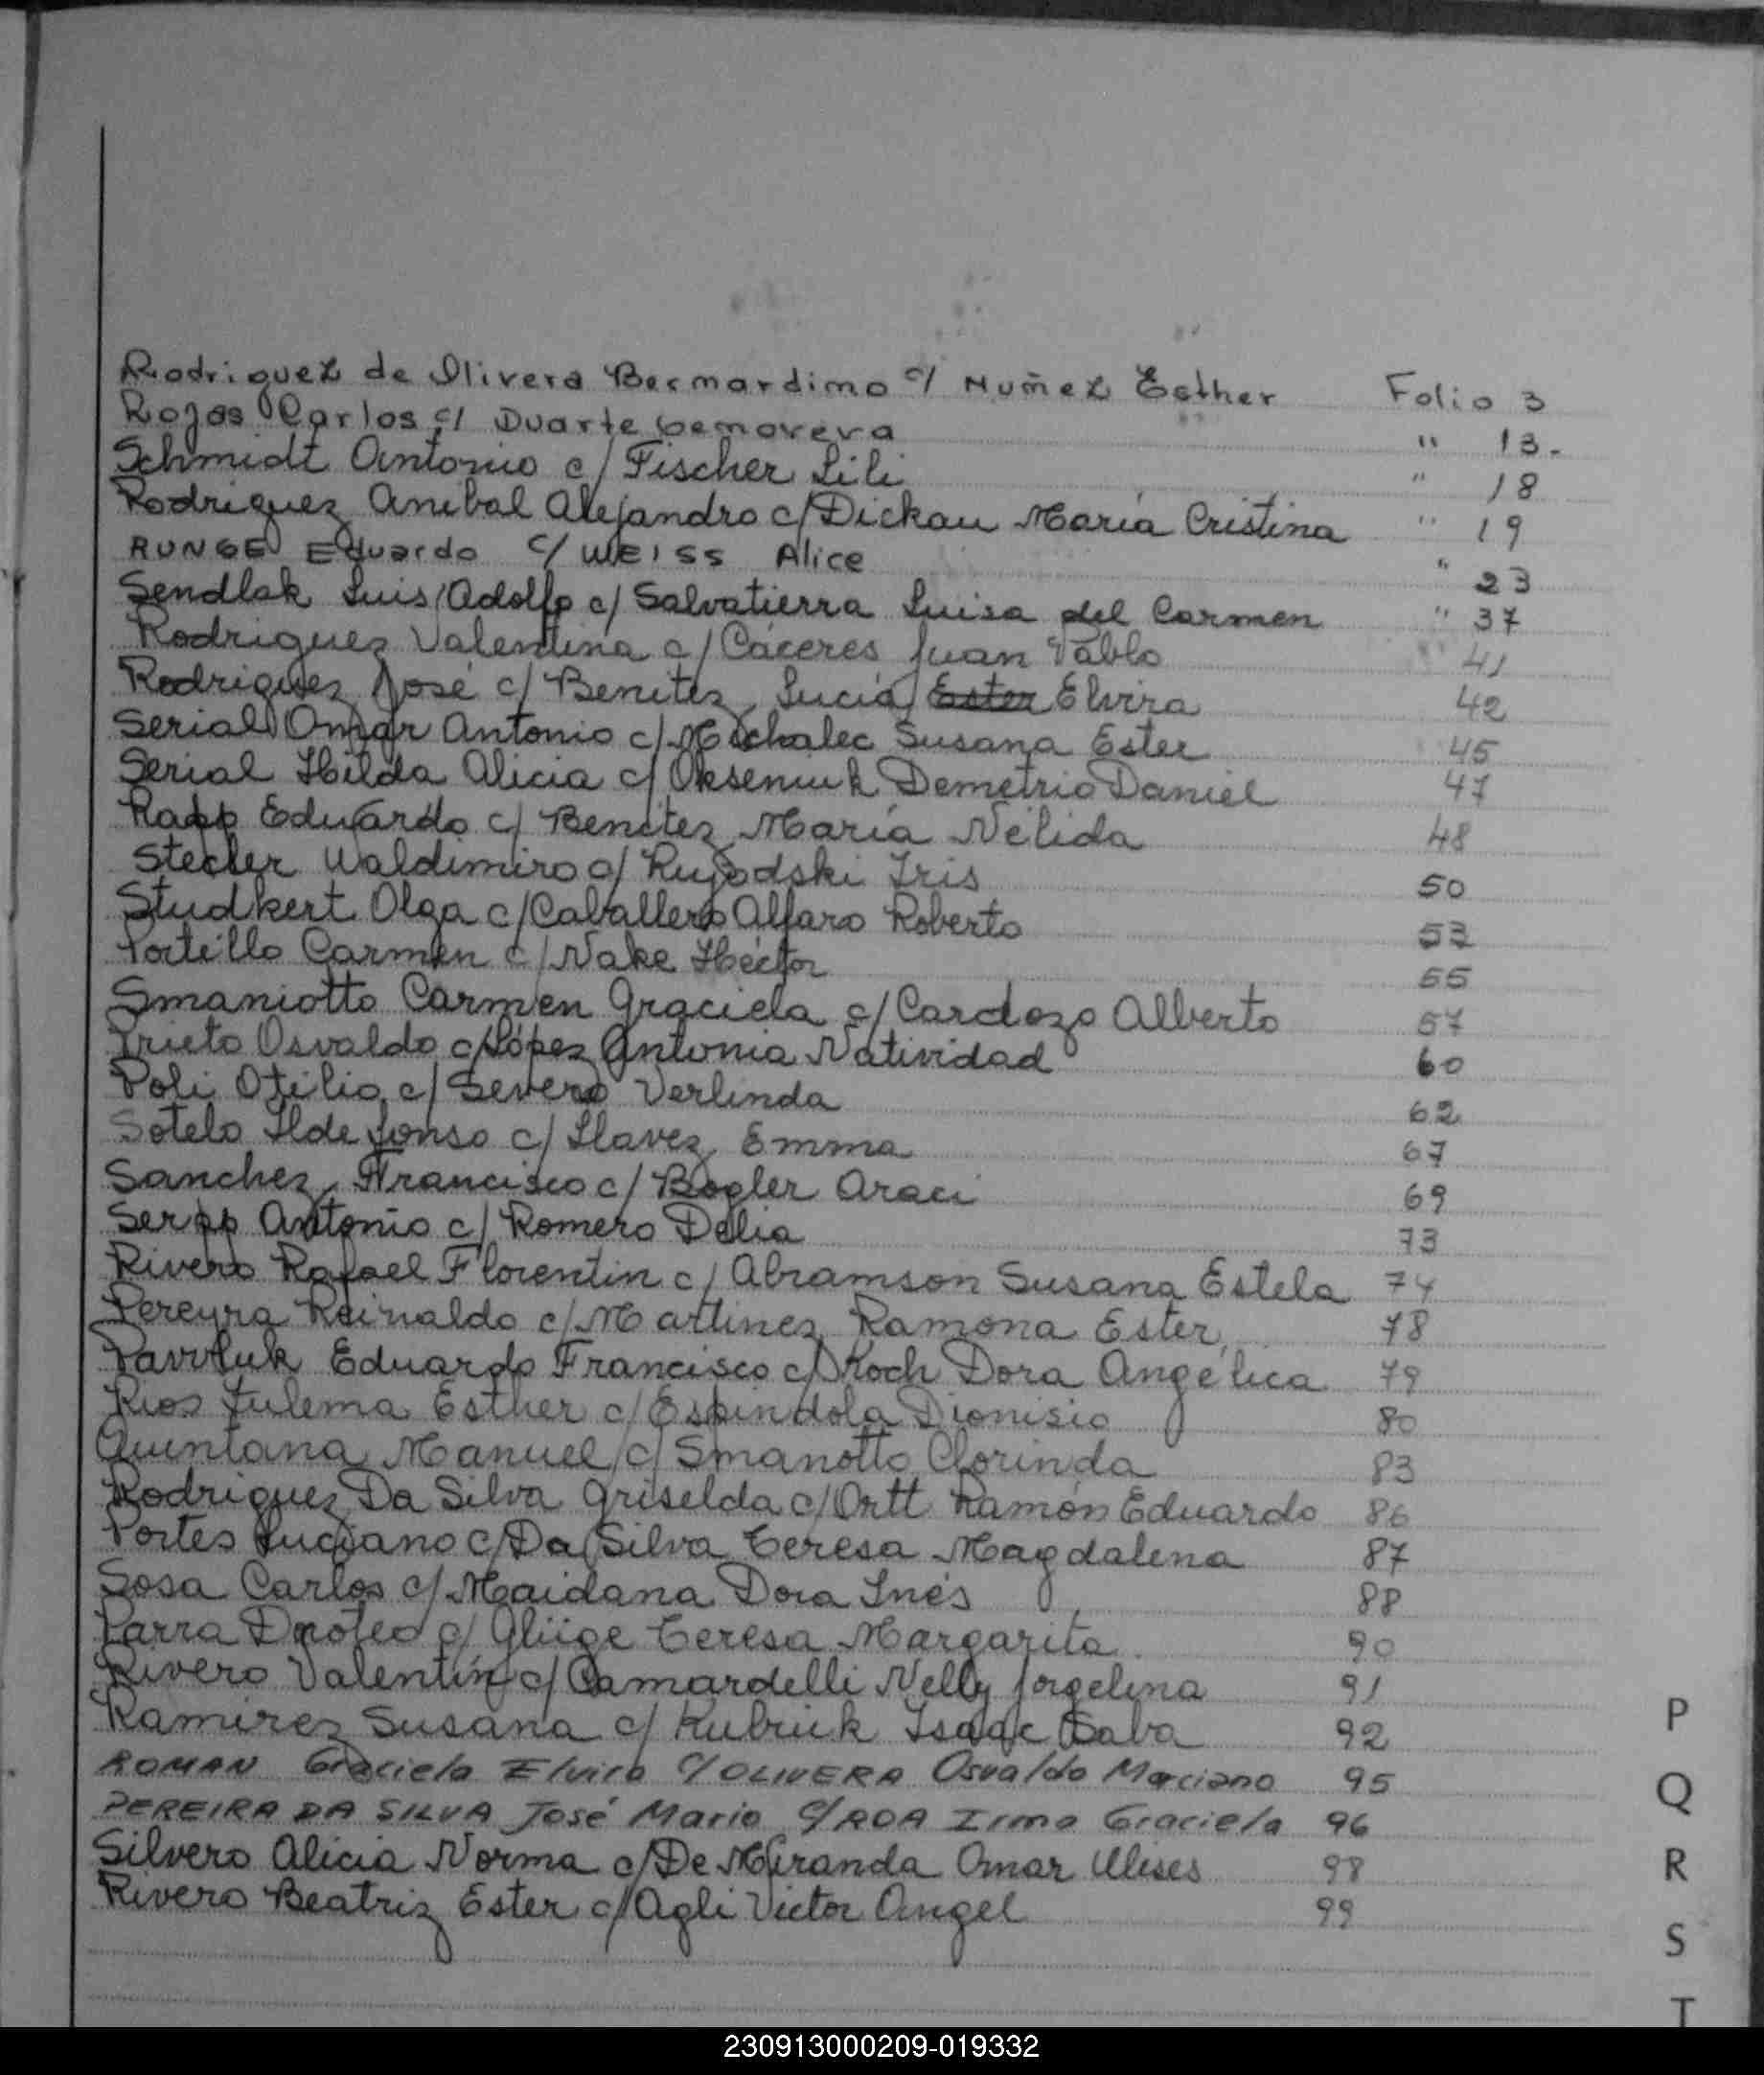 Rodriguez de Olivera Bernardino c/ Nuñez Esther Folio 3
Rojas Carlos c/ Duarte Genoveva " 13.
Schmidt Antonio c/ Fischer Lili " 18
Rodriguez Anibal Alejandro c/ Dickau María Cristina " 19
RUNGE Eduardo c/ WEISS Alice " 23
Sendlak Luis Adolfo c/ Salvatierra Luisa del Carmen " 37
Rodriguez Valentina c/ Cáceres Juan Pablo " 41
Rodriguez José c/ Benitez Lucía Ester Elvira 42
Serial Omar Antonio c/ Michalec Susana Ester 45
Serial Hilda Alicia c/ Okseniuk Demetrio Daniel 47
Rapp Eduardo c/ Benitez María Nélida 48
Stecler Waldimiro c/ Iris 50
Studkert Olga c/ Caballero Alfaro Roberto 53
Portillo Carmen c/ Nake Héctor 55
Smaniotto Carmen Graciela c/ Cardozo Alberto 57
Prieto Osvaldo c/ López Antonia Natividad 60
Poli Otilio c/ Severo Verlinda 62
Sotelo Ildefonso c/ Llavez Emma 67
Sanchez Francisco c/ Bogler Araci 69
Serpp Antonio c/ Romero Delia 73
Rivero Rafael Florentin c/ Abramson Susana Estela 74
Pereyra Reinaldo c/ Martinez Ramona Ester 78
Pavvluk Eduardo Francisco c/ Koch Dora Angélica 79
Rios Zulema Esther c/ Espindola Dionisio 80
Quintana Manuel c/ Smanotto Clorinda 83
Rodriguez Da Silva Griselda c/ Ortt Ramón Eduardo 86
Portes Luciano c/ Da Silva Teresa Magdalena 87
Sosa Carlos c/ Maidana Dora Inés 88
Parra Doroteo c/ Glüge Teresa Margarita 90
Rivero Valentín c/ Camardelli Nelly Jorgelina 91
Ramirez Susana c/ Kubriuk Isaac Saba 92
ROMAN Graciela Elvira c/ OLIVERA Osvaldo Marciano 95
PEREIRA DA SILVA José Mario c/ ROA Irma Graciela 96
Silvero Alicia Norma c/ De Miranda Omar Ulises 98
Rivero Beatriz Ester c/ Agli Victor Angel 99
P
Q
R
S
T
230913000209-019332